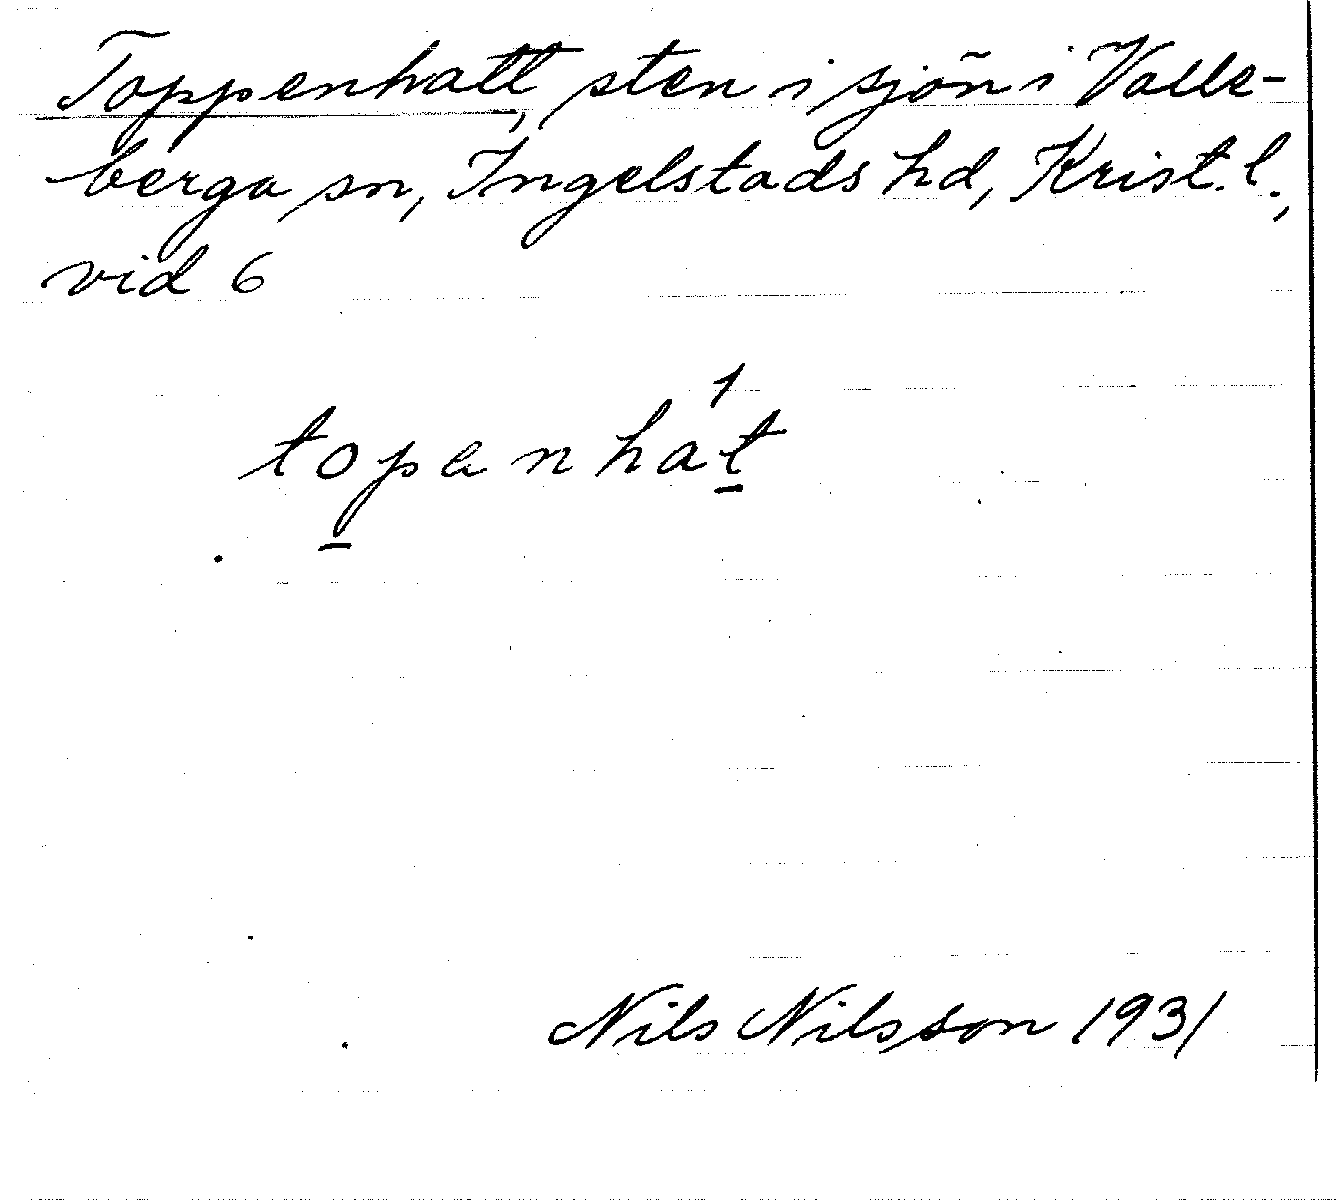 Toppenhatt, sten i sjön i Valle-
berga sn, Ingelstads hd, Krist. l.,
vid 6
topenha1t
Nils Nilsson 1931